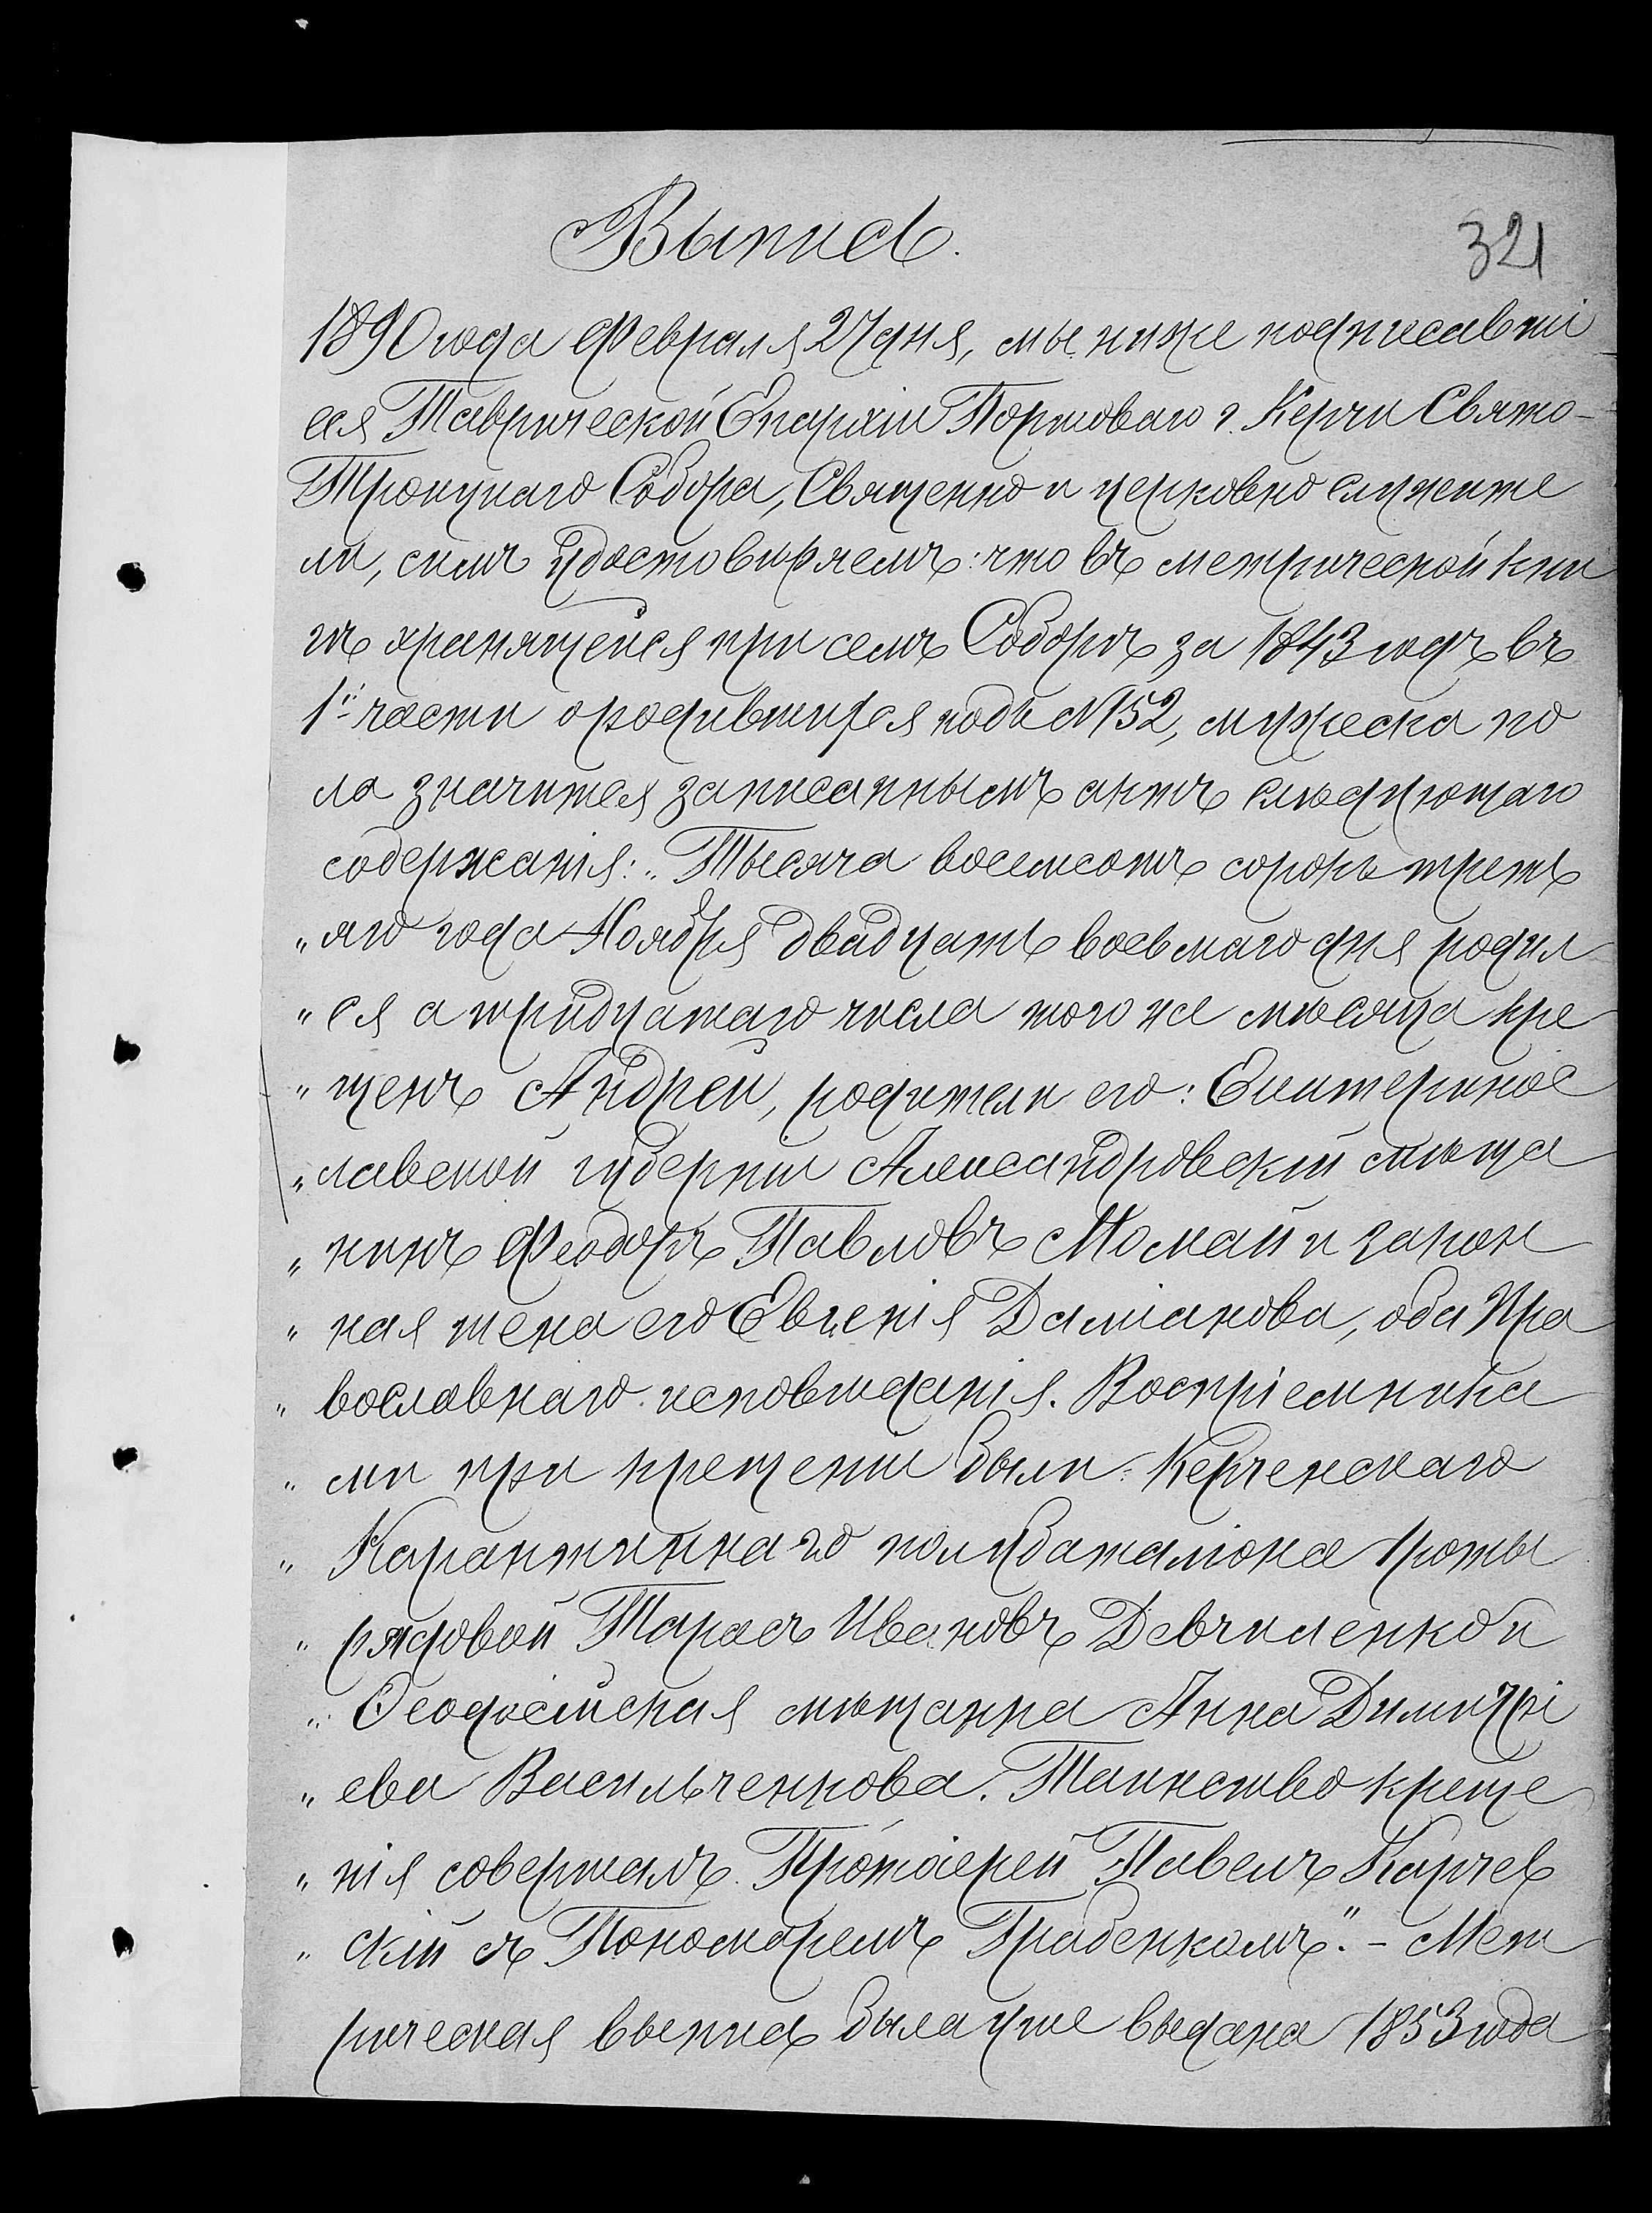 Выпись.
321
1890 года Февраля 27 дня, мы ниже подписавші
еся Таврической Епархіи Портоваго г. Керчи Свято-
Троицкаго Собора, Священно и церковно служите
ли, симъ удостовѣряемъ: что въ метрической кни
гѣ хранящейся при семъ Соборѣ за 1843 годъ въ
1й части о родившихся подъ №152, мужеска по
ла значится записаннымъ актъ слѣдующаго
содержанія: „Тысяча восемсотъ сорокъ треть
„ яго года Ноября двадцать восьмаго дня родил
„ ся а тридцатаго числа того же мѣсяца кре
„ щенъ Андрей, родители его: Екатеринос
„ лавской губерніи Александровскій мѣща
„ нинъ Феодоръ Павловъ Момай и закон
„ ная жена его Евгенія Даміанова, оба Пра
„ вославнаго исповѣданія. Воспріемника
„ ми при крещеніи были: Керченскаго
„ Карантиннаго полубаталіона 1 роты
„ рядовой Тарасъ Ивановъ Девчиленко и
„ Ѳеодосійская мѣщанка Анна Димитрі
„ ева Васильченкова. Таинство креще
„ нія совершалъ Протоіерей Павелъ Карчев
„ скій съ Пономаремъ Грабенкомъ". - Мет
рическая выпись была уже выдана 1853 года